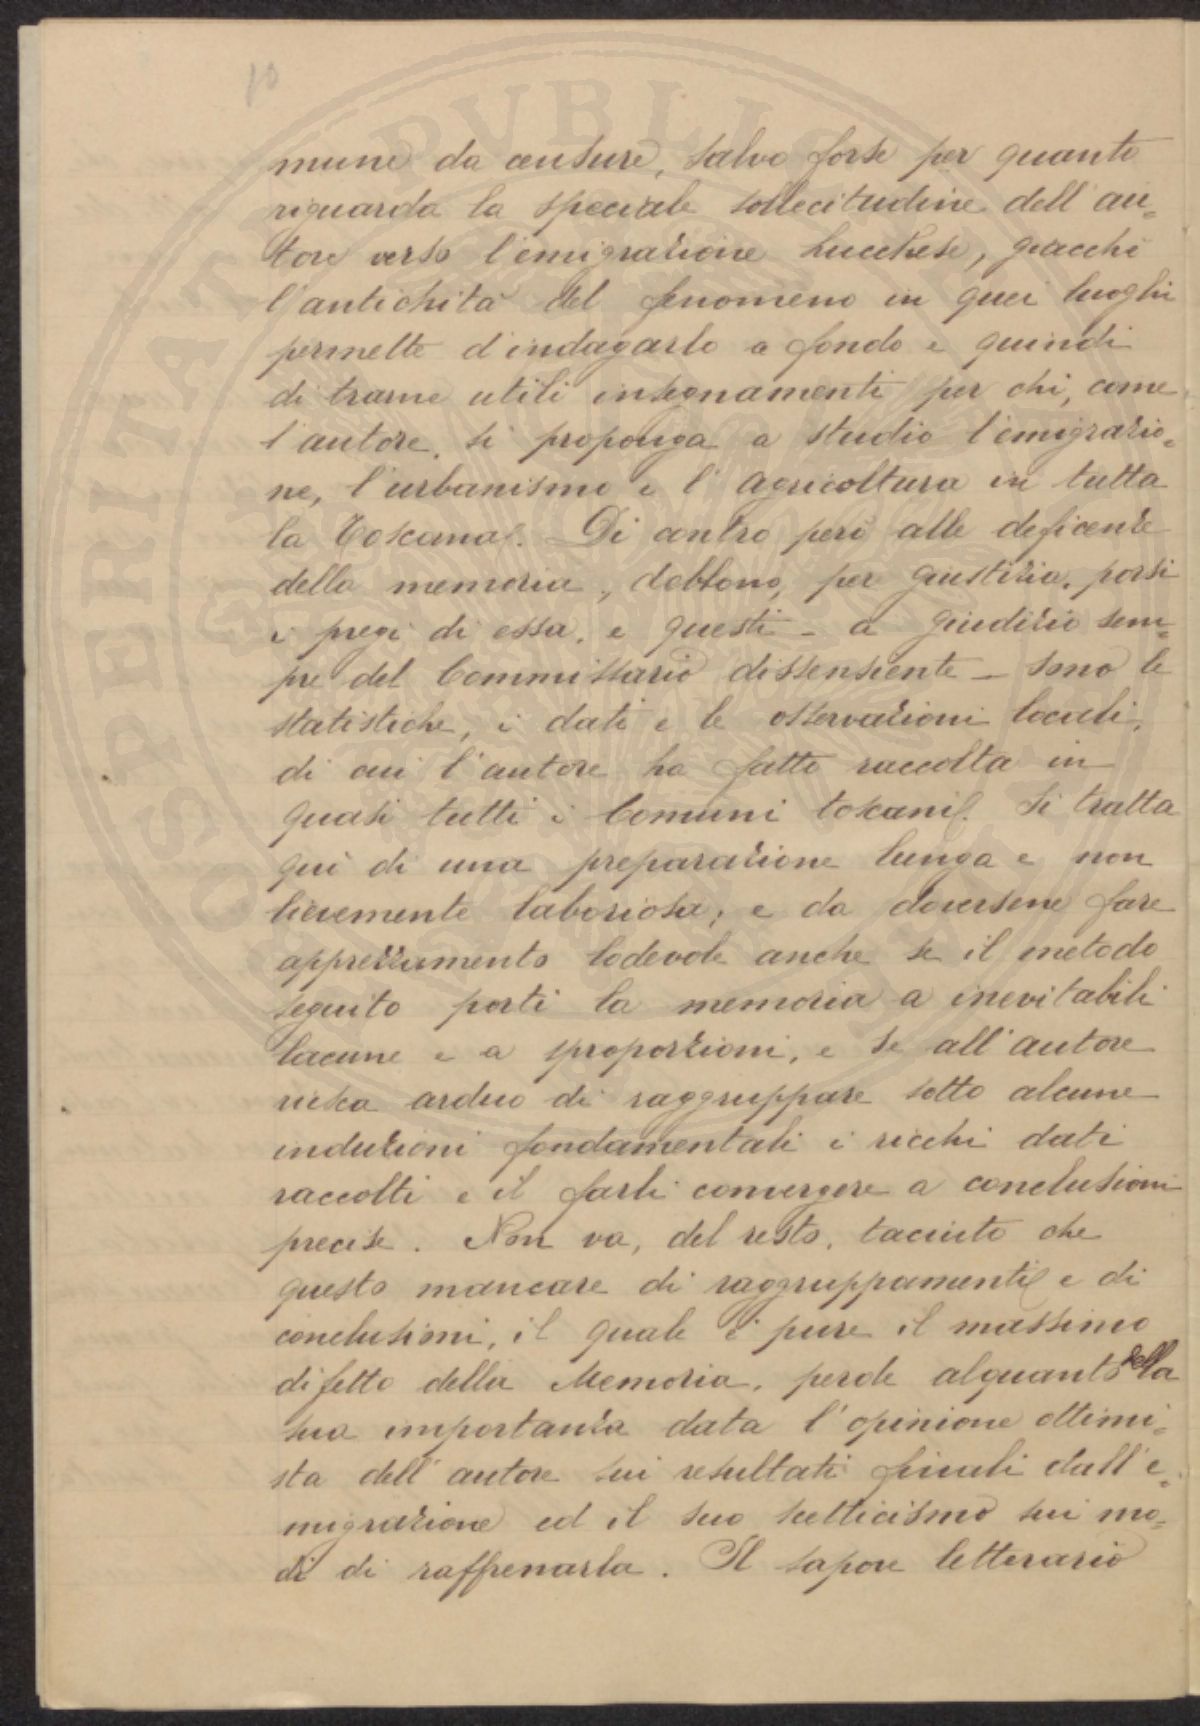 10
mune da censure, salvo forse per quanto
riguarda la speciale sollecitudine dell'au=
tore verso l'emigrazione Lucchese, giacchè
l'antichità del fenomeno in quei luoghi
permette d'indagarlo a fondo e quindi
di trarne utili insegnamenti per chi, come
l'autore, si proponga a studio l'emigrazio=
ne, l'urbanismo e l'agricoltura in tutta
la Toscana. Di contro però alle deficenze
della memoria, debbono, per giustizia, porsi
i pregi di essa, e questi - a giudizio sem=
pre del Commissario dissensiente - sono le
statistiche, i dati e le osservazioni locali,
di cui l'autore ha fatto raccolta in
quasi tutti i Comuni toscani. Si tratta
qui di una preparazione lunga e non
lievemente laboriosa; e da doversene fare
apprezzamento lodevole anche se il metodo
seguito porti la memoria a inevitabili
lacune e a sproporzioni, e se all'autore
riesca arduo di raggruppare sotto alcune
induzioni fondamentali i ricchi dati
raccolti e il farli convergere a conclusioni
precise. Non va, del resto, taciuto che
questo mancare di raggruppamenti e di
conclusioni, il quale è pure il massimo
difetto della Memoria, perde alquanto della
sua importanza data l'opinione ottimi=
sta dell'autore sui resultati finali dall'e=
migrazione ed il suo scetticismo sui mo=
di di raffrenarla. Il sapore letterario